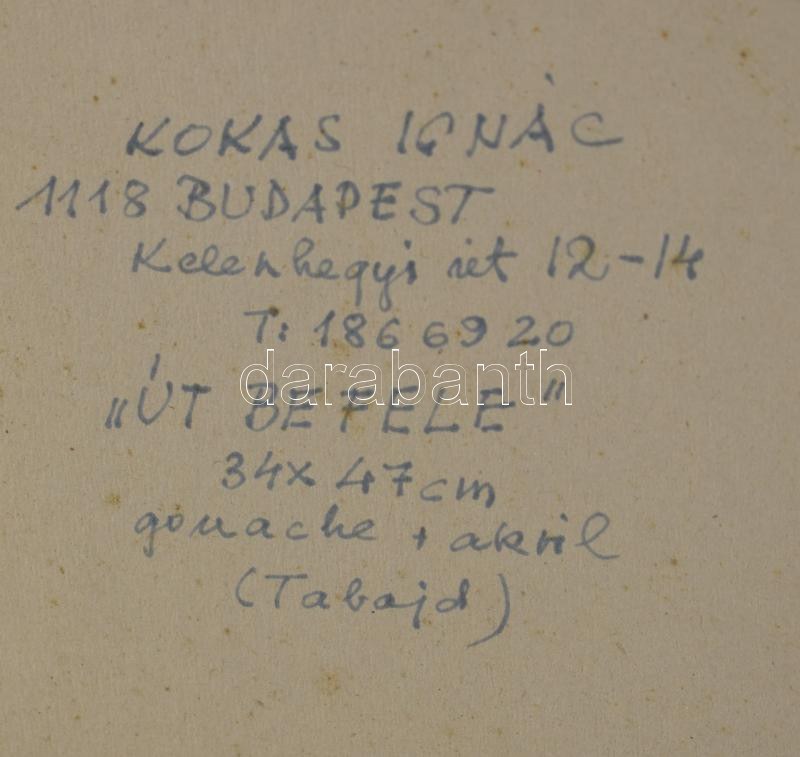 KOKAS IGNÁC
1118 BUDAPEST
Kelenhegyi út 12-14
T: 186 69 20
darabanth
„ÚT BEFELE”
34x47cm
gouache + akril
(Tabajd)